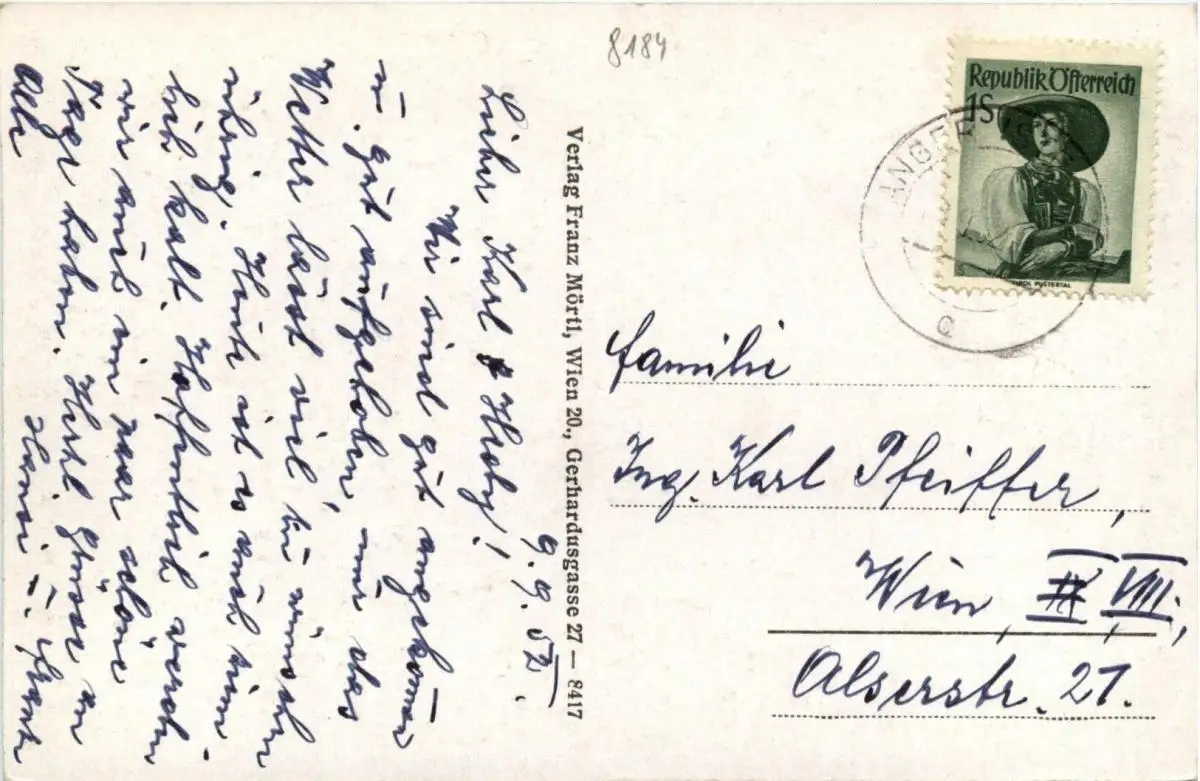 9.9.52.
Lieber Karl & Hedy!
Wir sind gut angekommen
u. gut aufgehoben, nur das
Wetter lässt viel zu wünschen
übrig. Heute ist es auch ein
bish kalt. Hoffentlich werden
wir auch ein paar schöne
Tage haben. Herzl. Grüsse an
Alle
Hansi u.
Verlag Franz Mörtl, Wien 20., Gerhardusgasse 27 — 8417
8184
Republik Österreich
1S
TIROL PUSTERTAL
Familie
Ing. Karl Pfeiffer,
Wien, VIII.,
Alserstr. 21.